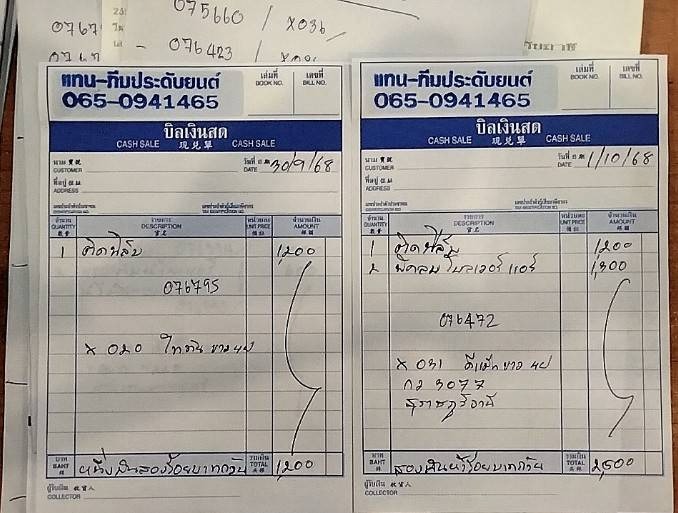 075660 / X036
- 076423 /
แทน-ทีมประดับยนต์
065-0941465
เล่มที่
BOOK NO.
เลขที่
BILL NO.
บิลเงินสด
CASH SALE 現兌單 CASH SALE
นาม
CUSTOMER
วันที่
DATE 30/9/68
ที่อยู่
ADDRESS
จำนวน
QUANTITY
รายการ
DESCRIPTION
หน่วยละ
UNIT PRICE
จำนวนเงิน
AMOUNT
1 ติดฟิล์ม 1,200
076795
X 020 ไททัน ขาว 4ป
บาท
BAHT
หนึ่งพันสองร้อยบาทถ้วน
รวมเงิน
TOTAL
1,200
ผู้รับเงิน
COLLECTOR
แทน-ทีมประดับยนต์
065-0941465
เล่มที่
BOOK NO.
เลขที่
BILL NO.
บิลเงินสด
CASH SALE 現兌單 CASH SALE
นาม
CUSTOMER
วันที่
DATE 1/10/68
ที่อยู่
ADDRESS
จำนวน
QUANTITY
รายการ
DESCRIPTION
หน่วยละ
UNIT PRICE
จำนวนเงิน
AMOUNT
1 ติดฟิล์ม 1,200
2 พัดลมโบลเวอร์ แอร์ 1,300
076472
X 031 ดีแม็ก ขาว 4ป
กว 3077
สุราษฎร์ธานี
บาท
BAHT
สองพันห้าร้อยบาทถ้วน
รวมเงิน
TOTAL
2,500
ผู้รับเงิน
COLLECTOR